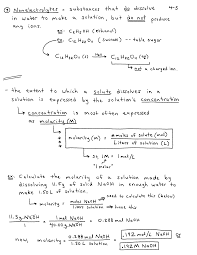 4-3
④ Nonelectrolytes = substances that do dissolve
in water to make a solution, but do not produce
any ions.
ex: C₂H₅OH (ethanol)
ex: C₁₂H₂₂O₁₁ (sucrose) -- table sugar
C₁₂H₂₂O₁₁ (s) → C₁₂H₂₂O₁₁ (aq)
not a charged ion
- the extent to which a solute dissolves in a
solution is expressed by the solution's concentration
↳ concentration is most often expressed
as molarity (M)
↳ molarity (M) = # moles of solute (mol) / Liters of solution (L)
↳ so 1M = 1 mol/L
"1 molar"
ex: Calculate the molarity of a solution made by
dissolving 11.5g of solid NaOH in enough water to
make 1.50L of solution.
need to calculate this (below)
molarity = moles NaOH / Liters solution
have this
11.5g NaOH / 1 | 1 mol NaOH / 40.00g NaOH = 0.288 mol NaOH
now, molarity = 0.288 mol NaOH / 1.50 L solution = 0.192 mol/L NaOH
or
0.192 M NaOH